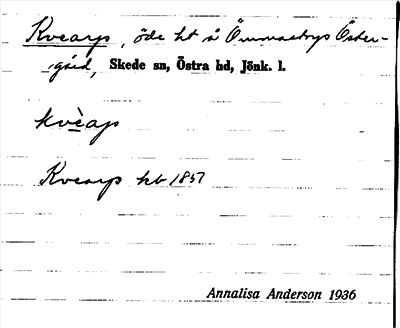 Kvearp, öde ht å Ömmestorps Öster-
gård, Skede sn, Östra hd, Jönk. l.
kvèap
Kvearp kb 1857
Annalisa Anderson 1936